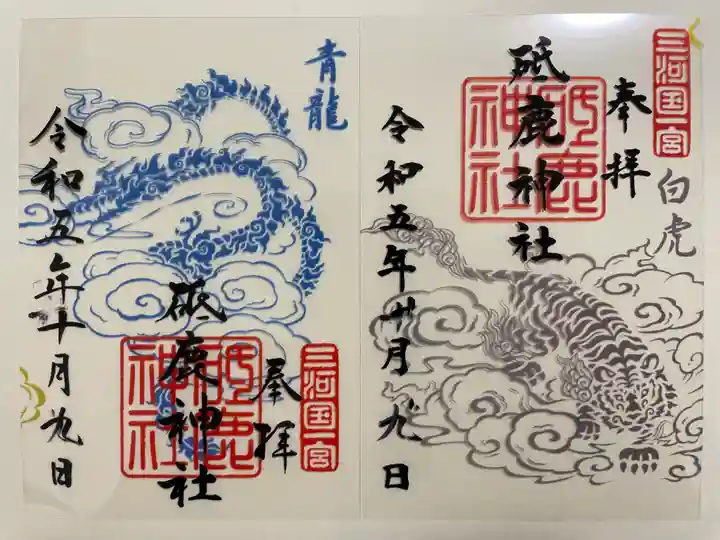 青龍
三河国一宮
奉拝
砥鹿神社
砥鹿神社
令和五年十月九日
三河国一宮
奉拝
白虎
砥鹿神社
砥鹿神社
令和五年十月九日